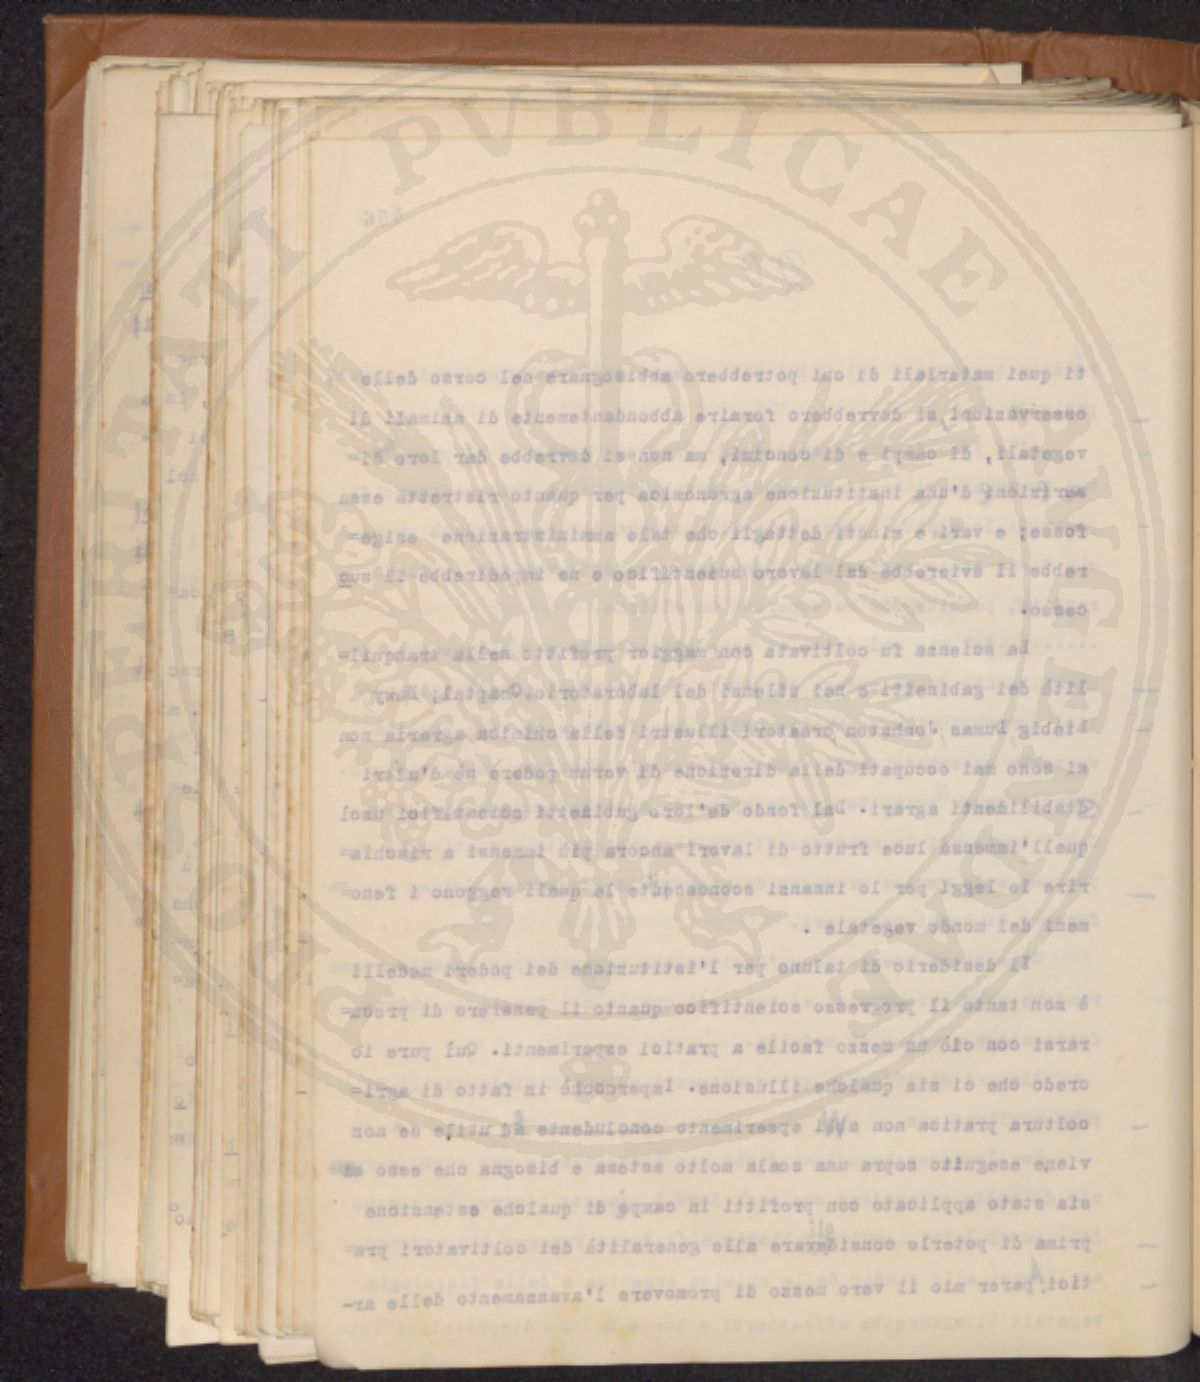 ti quei materiali di cui potrebbero abbisognare nel corso delle
osservazioni si dovrebbero fornire abbondantemente di animali di
vegetali, di campi e di concimi, ma non si dovrebbe dar loro di=
d'una instituzione agronomica per quanto ristretta essa
fosse; e vari e minuti dettagli che tale amministrazione esige=
rebbe li svierebbe dal lavoro scientifico e ne impedirebbe il suc
cesso.
La scienza fu coltivata con maggior profitto nella tranquil=
lità dei gabinetti e nei silenzi del laboratorio. Chaptal; Davy
Liebig Dumas Jonhston creatori illustri della chimica agraria non
si sono mai occupati della direzione di verun podere nè d'altri
stabilimenti agrari. Dal fondo de'loro gabinetti scientifici uscì
quell'immensa luce frutto di lavori ancora più immensi a rischia=
rire le leggi per lo innanzi sconosciute le quali reggono i feno=
meni del mondo vegetale .
Il desiderio di taluno per l'istituzione dei poderi modelli
è non tanto il progresso scientifico quanto il pensiero di procu=
rarsi con ciò un mezzo facile a pratici esperimenti. Quì pure io
credo che ci sia qualche illusione. Impercochè in fatto di agri=
coltura pratica non avvi esperimento concludente ed utile se non
viene eseguito sopra una scala molto estesa e bisogna che esso
sia stato applicato con profitti in campo di qualche estensione
prima di poterlo considerare alle generalità dei coltivatori pra=
tici, parer mio il vero mezzo di promovere l'avanzamento delle ar-
PERITATI PVBLICAE